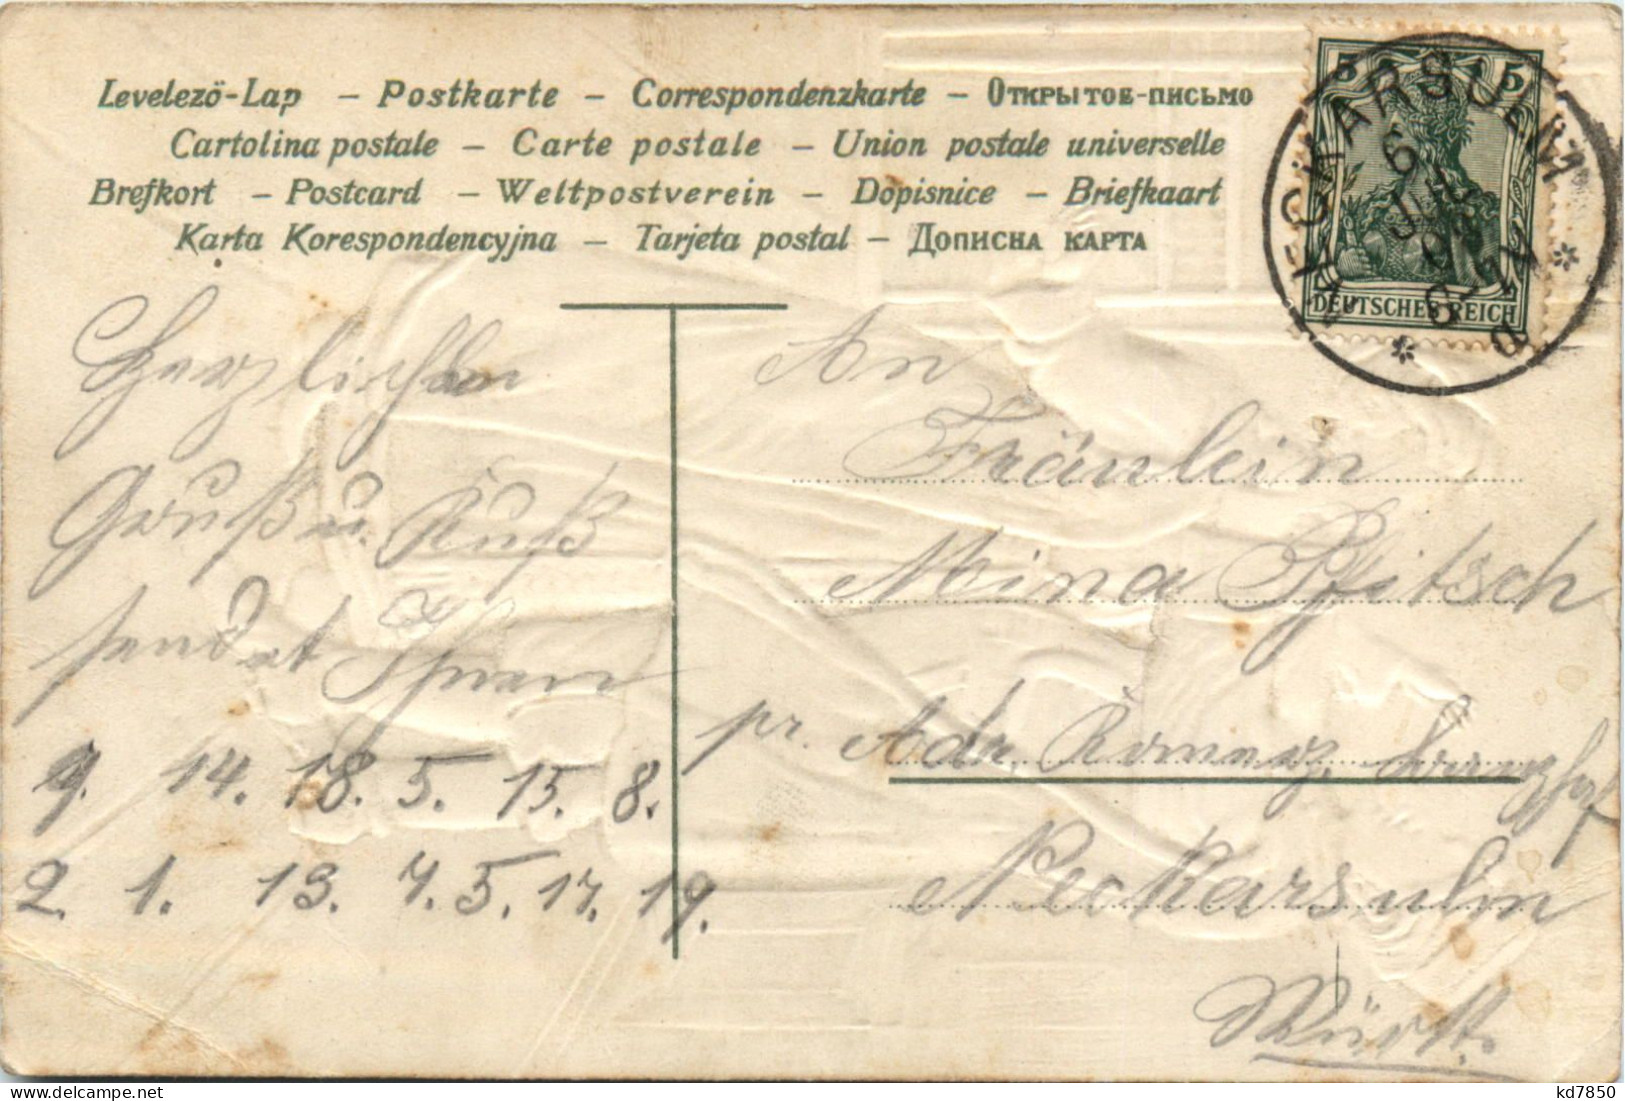 Levelező-Lap – Postkarte – Correspondenzkarte – Открытое-письмо
Cartolina postale – Carte postale – Union postale universelle
Brefkort – Postcard – Weltpostverein – Dopisnice – Briefkaart
Karta Korespondencyjna – Tarjeta postal – Дописна карта
5 5
DEUTSCHES REICH
NECKARSULM
6 JUL
Herzlichen
Gruß u. Kuß
sendet Ihnen
9. 14. 18. 5. 15. 8.
2. 1. 13. 7. 5. 17. 19.
An
Fräulein
Mina Pfitsch
pr. Adr.
Neckarsulm
Württ.
kd7850